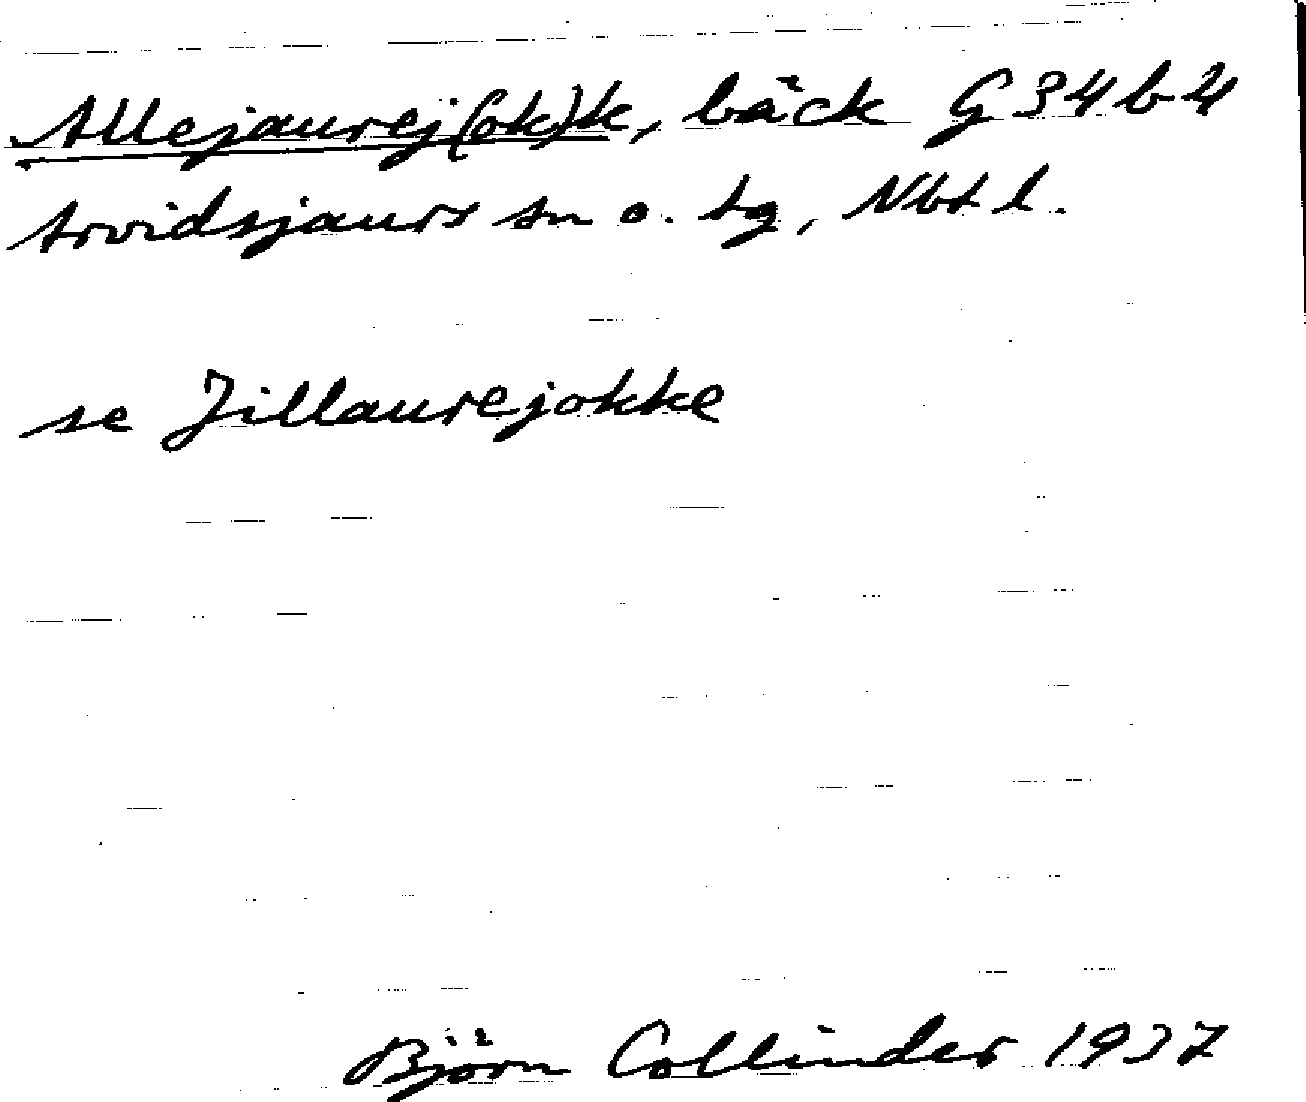 Allejaurej(ok)k, bäck G34b4
Arvidsjaurs sn o. tg, Nbt l.
se Jillaurejokke
Björn Collinder 1937